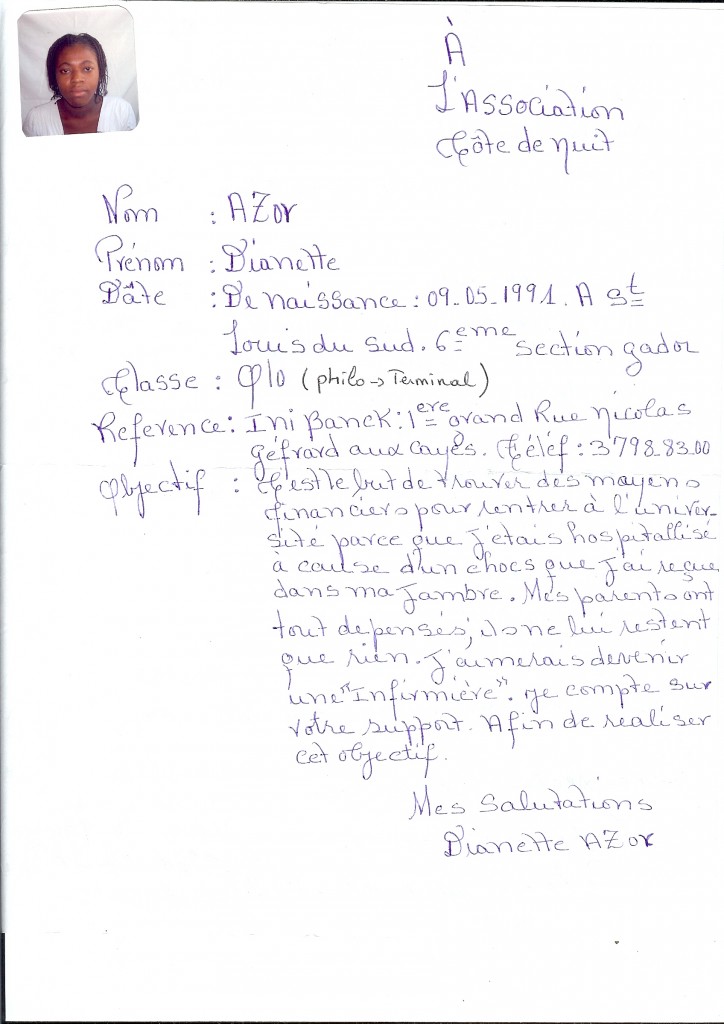 À
L'Association
Côte de nuit
Nom : AZor
Prénom : Dianette
Dâte : De naissance : 09-05-1991. A St
Louis du sud. 6eme section gador
Classe : Φlo (philo → Terminal)
Reference : Ini Banck : 1ere Grand Rue Nicolas
géfrard aux cayes. Téléf : 3798-83.00
Objectif : C'est le but de trouver des moyens
financiers pour rentrer à l'univer-
sité parce que j'etais hospitallisé
à cause d'un chocs que j'ai reçue
dans ma jambre. Mes parents ont
tout depensés; ils ne lui restent
que rien. J'aimerais devenir
une "Infirmière". je compte sur
votre support. Afin de realiser
cet objectif.
Mes Salutations
Dianette AZor